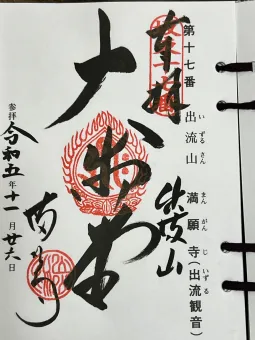 第十七番 出流山 満願寺(出流観音)
いずるさん まんがんじ いずる
奉拝
出流山
大御堂
満願寺
参拝 令和五年十一月廿六日